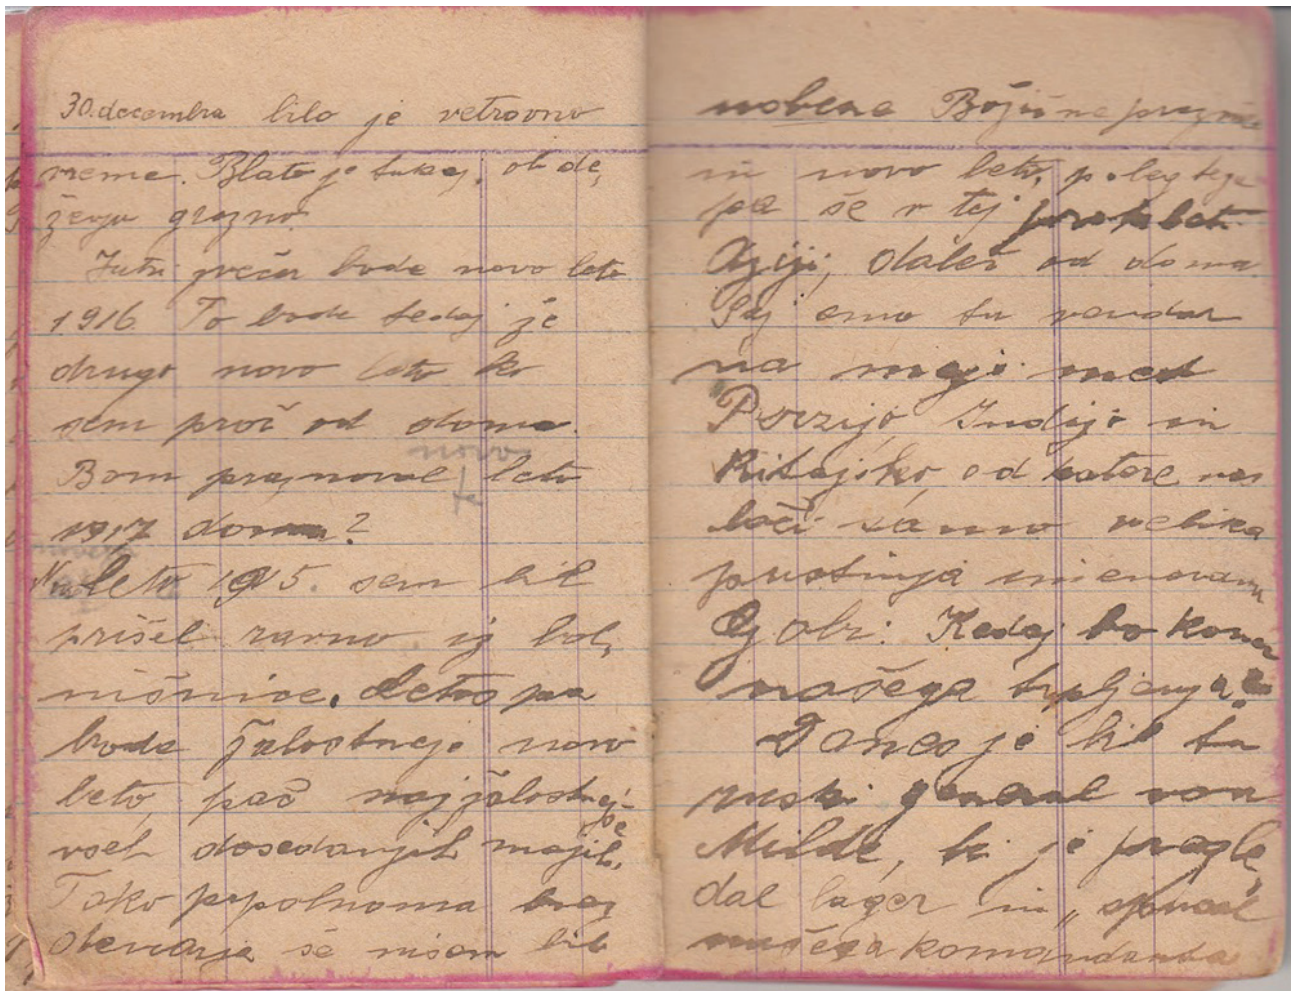 30. decembra bilo je vetrovno
vreme. Blato je tukaj, ob de,
ževju grozno.
Jutri zvečer bode novo leto
1916. To bode sedaj že
drugo novo leto ko
sem proč od doma.
novo
Bom praznoval leto
1917 doma?
leto 1915. sem bil
prišel ravno iz bol,
nišnice. Letos pa
bode žalostneje novo
leto, pač najžalostnej-
še
vseh dosedanjih mojih.
Tako popolnoma brez
še nisem bil
nobene Božične praznike
in novo leto, poleg tega
pa še v tej prokleti
Aziji, daleč od doma.
Saj smo tu vendar
na meji med
Perzijo, Indijo in
Kitajsko, od katere nas
loči samo velika
pustinja imenovana
Gobi. Kedaj bo konec
našega trpljenja?
Danes je bil tu
ruski general von
Milde, ki je pregle,
dal lager in
našega komandanta